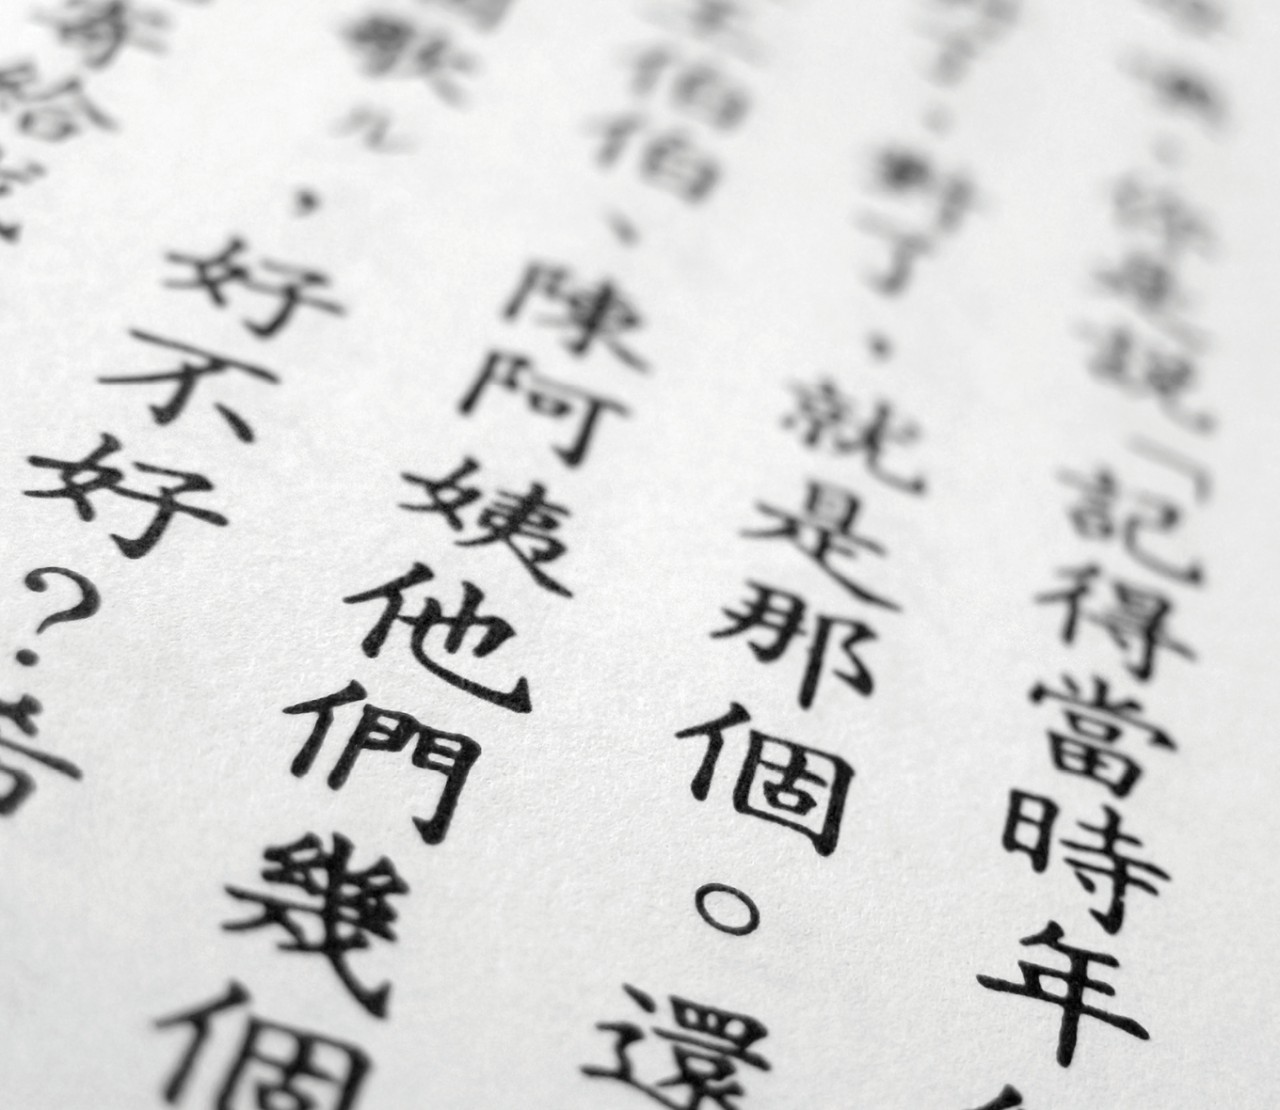 你是說「記得當時年
對了，就是那個。還
伯伯、陳阿姨他們幾個
歌兒，好不好？
給